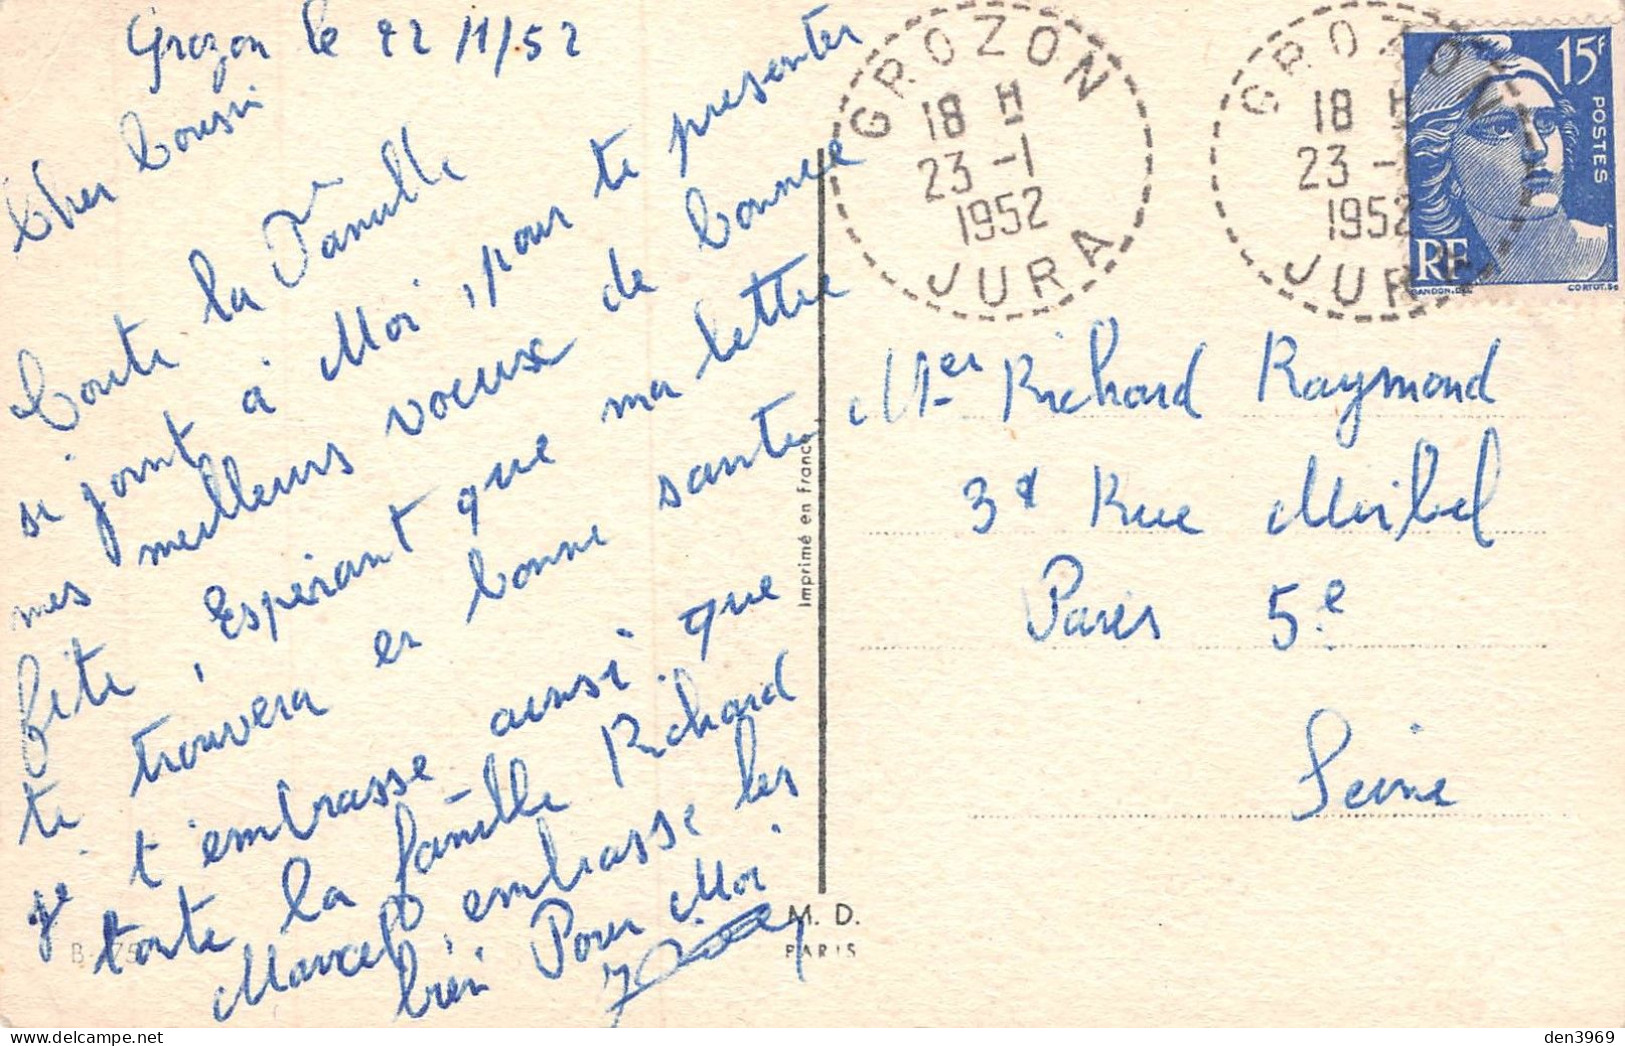 Grozon le 22/1/52
Cher Cousin
Toute la Famille
se joint à Moi, pour te presenter
mes meilleurs voeux de bonnee
fete, Espérant que ma lettre
te trouvera en bonne sante
je t'embrasse ainsi que
toute la famille Richard
Marcel, embrasse les
bien Pour Moi
B-75
Imprimé en France
M. D.
PARIS
GROZON
18 H
23 -1
1952
JURA
GROZON
18 H
23 -
1952
JURA
15F
POSTES
RF
GANDON.DEL
CORTOT.SC
Mer Richard Raymond
Rue Mirbel
Paris 5e
Seine
den3969